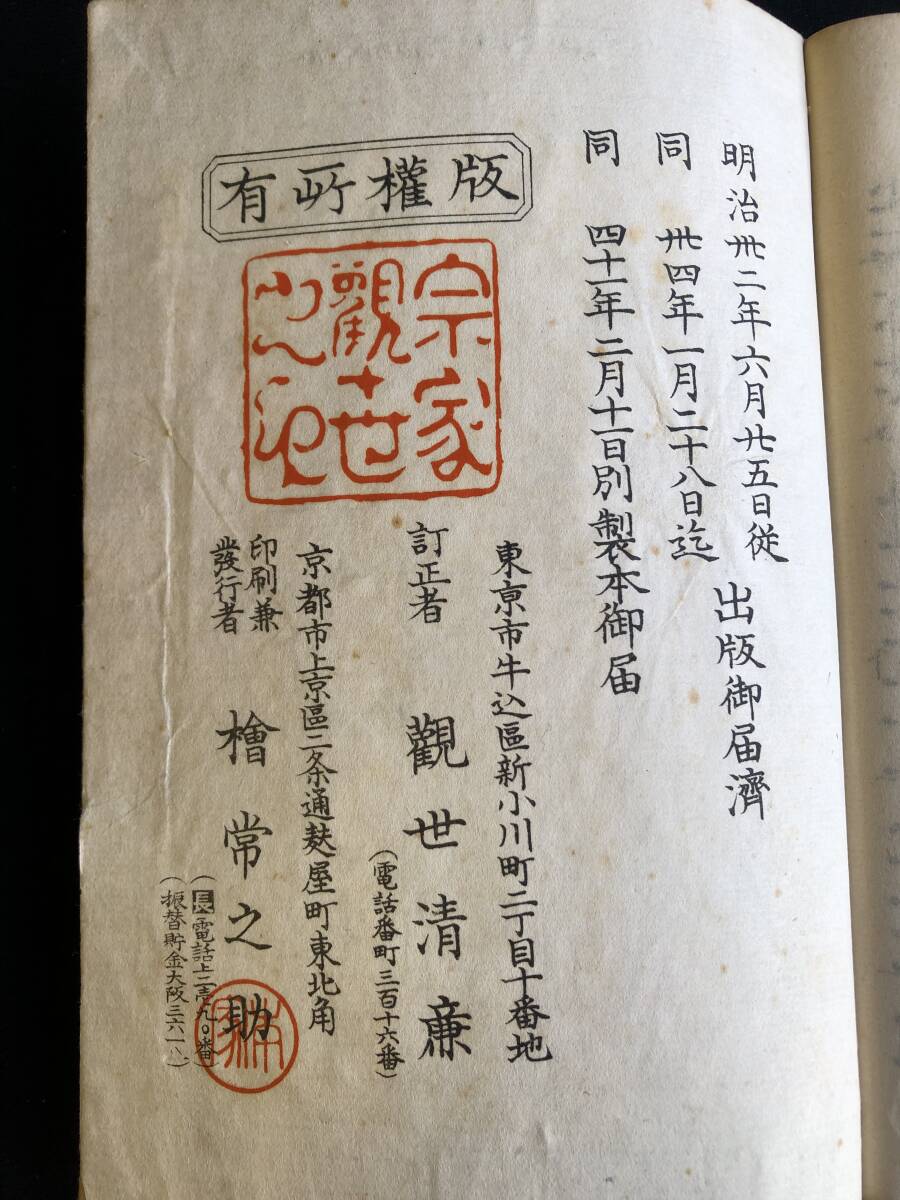 明治卅二年六月廿五日従
同 卅四年一月二十八日迄
出版御届濟
同 四十一年二月十一日別製本御届
東京市牛込區新小川町二丁目十番地
訂正者 觀世清廉
(電話番町三百十六番)
京都市上京區二条通麸屋町東北角
印刷兼
發行者
檜常之助
電話上二壱九〇番)
(振替貯金大阪三六一八)
版權所有
宗家
觀世